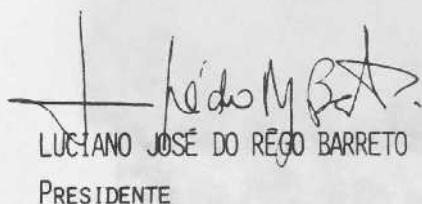 LUCIANO JOSÉ DO RÊGO BARRETO
PRESIDENTE